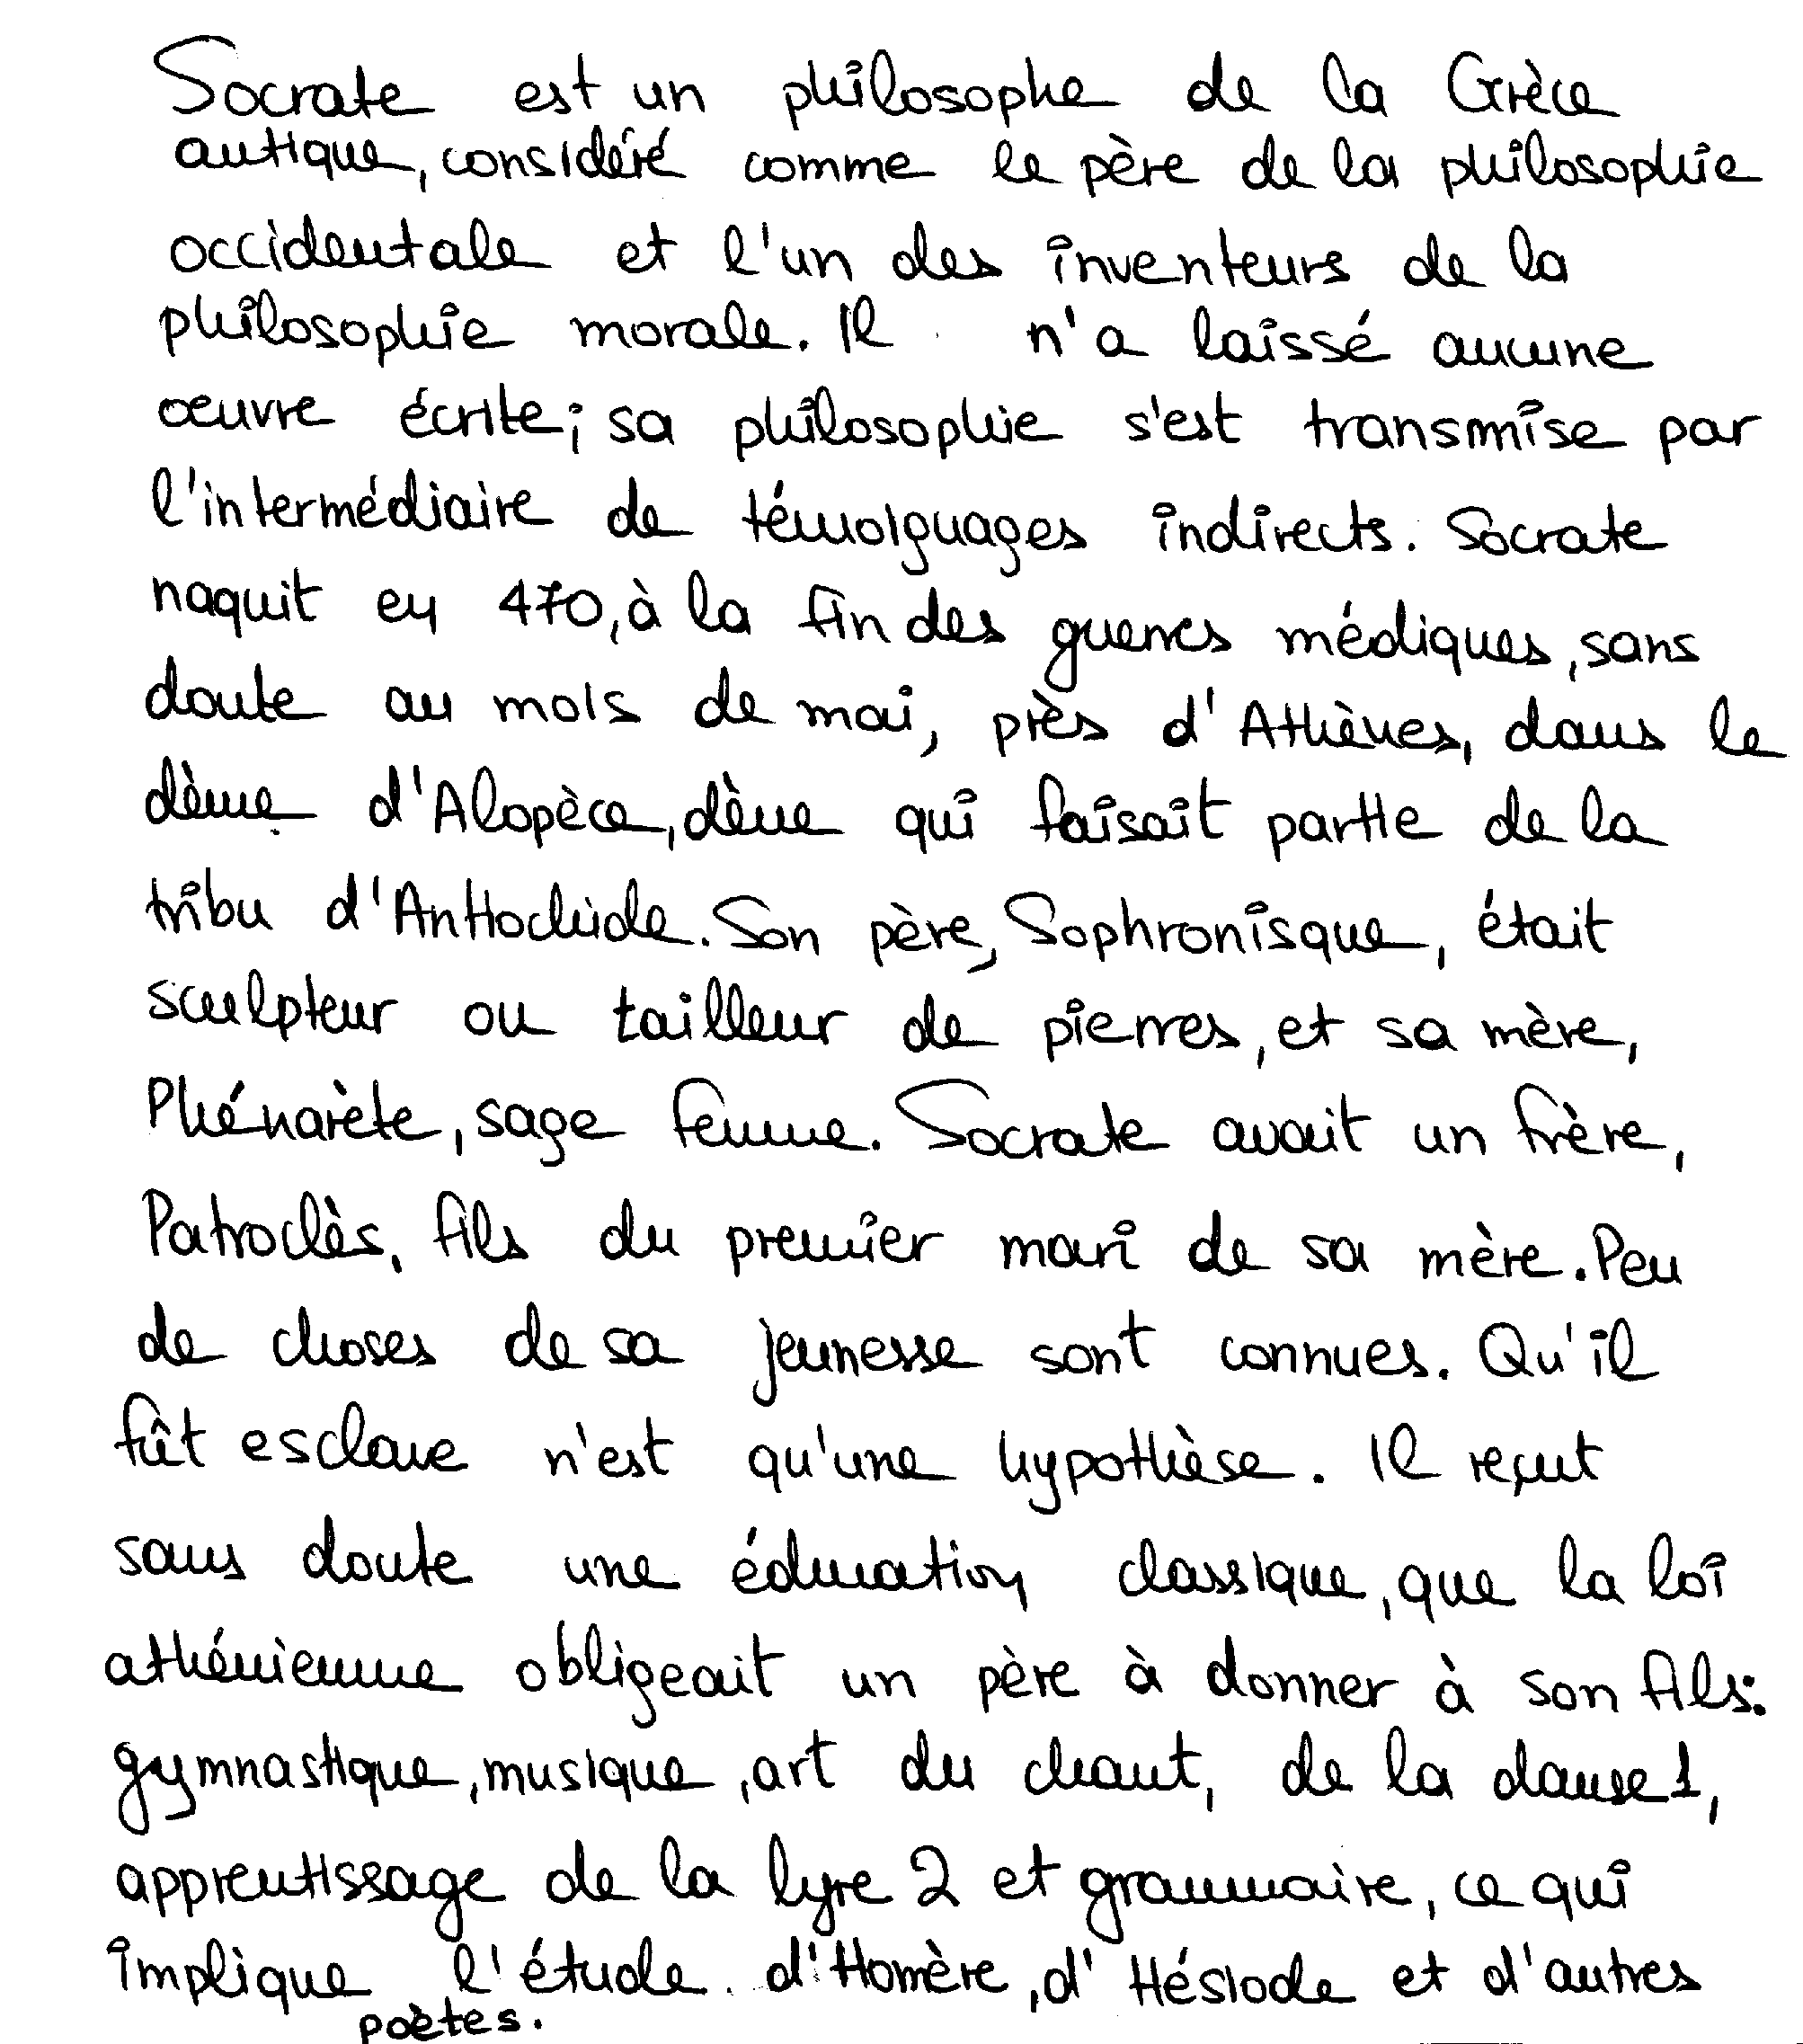 Socrate est un philosophe de la Grèce
antique, considéré comme le père de la philosophie
occidentale et l'un des inventeurs de la
philosophie morale. Il n'a laissé aucune
œuvre écrite; sa philosophie s'est transmise par
l'intermédiaire de témoignages indirects. Socrate
naquit en 470, à la fin des guerres médiques, sans
doute au mois de mai, près d'Athènes, dans le
dème d'Alopèce, dème qui faisait partie de la
tribu d'Antiochide. Son père, Sophronisque, était
sculpteur ou tailleur de pierres, et sa mère,
Phénarète, sage femme. Socrate avait un frère,
Patroclès, fils du premier mari de sa mère. Peu
de choses de sa jeunesse sont connues. Qu'il
fût esclave n'est qu'une hypothèse. Il reçut
sans doute une éducation classique, que la loi
athénienne obligeait un père à donner à son fils:
gymnastique, musique, art du chant, de la danse 1,
apprentissage de la lyre 2 et grammaire, ce qui
implique l'étude d'Homère, d'Hésiode et d'autres
poètes.